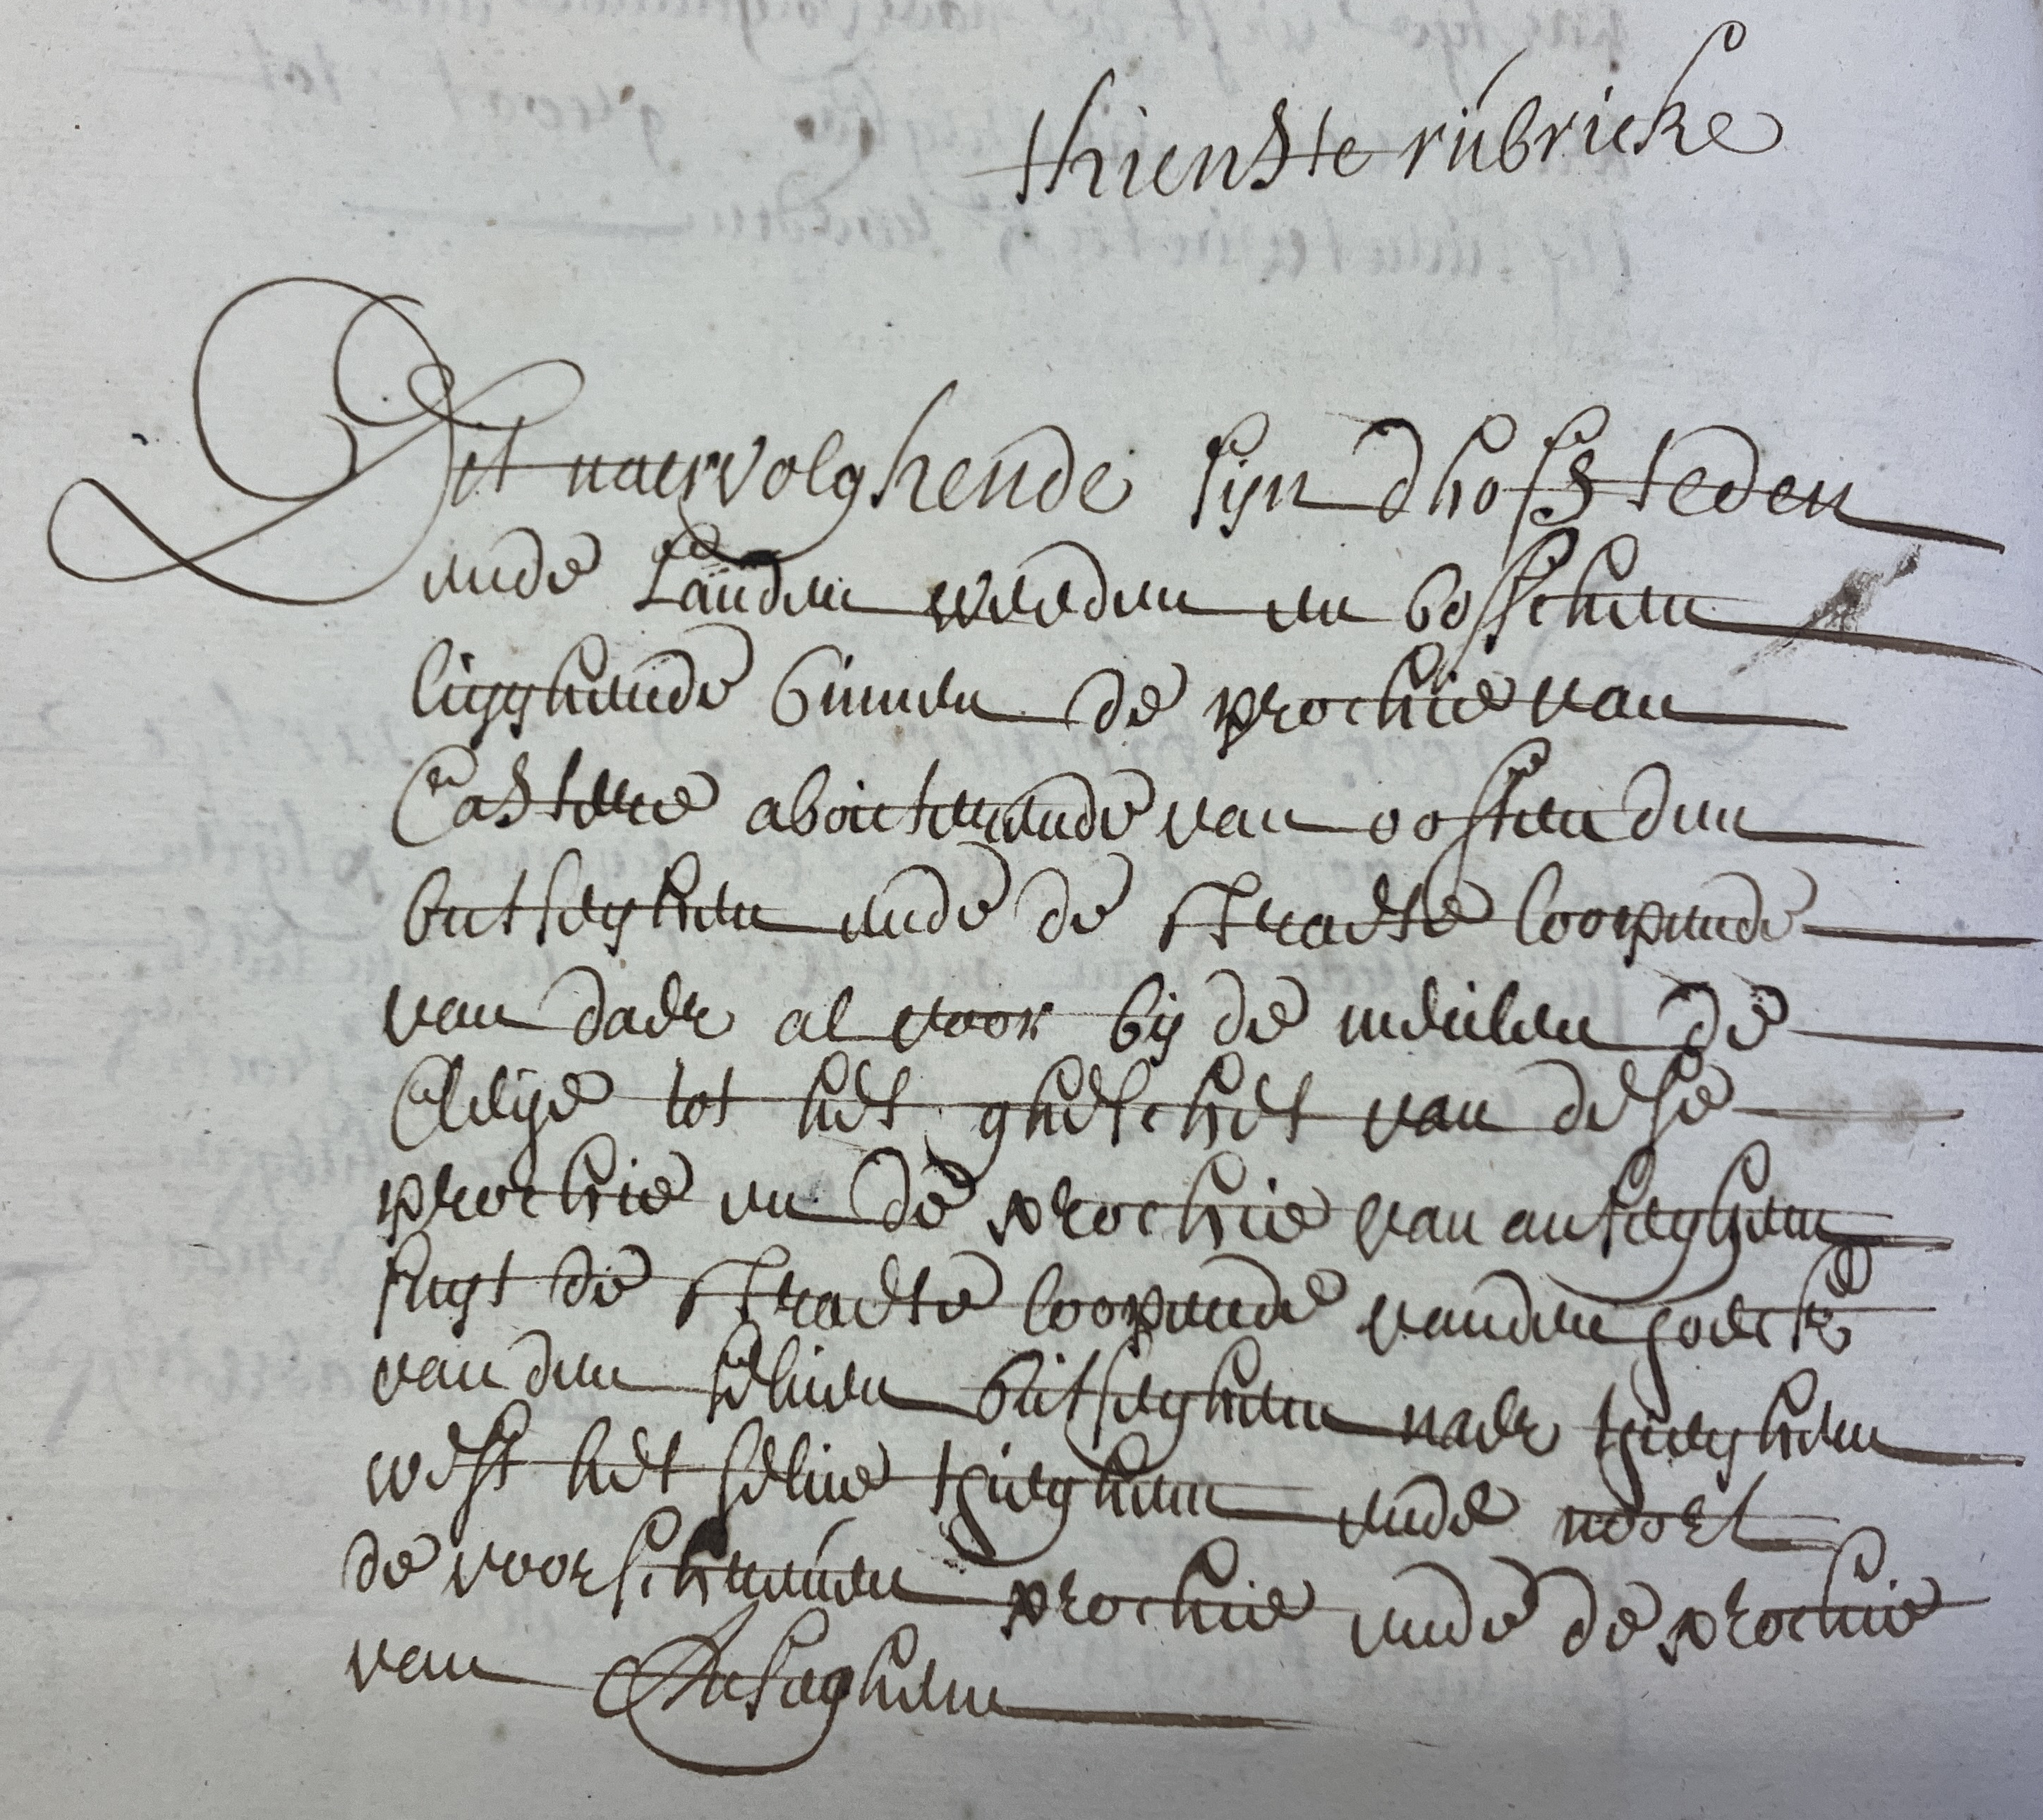 thienste rubricke
Dit naervolghende sijn dhofsteden
ende Landen weeden en bosschen
ligghende binnen de prochie van
Castere aboutterende van oosten den
butseghem ende de straete loopende
van daer al voor bij de meulen de
Cleije tot het ghescheet van dese
prochie en de prochie van anseghem
suyt de straete loopende vanden
van den selven butseghem naer tjieghem
west het selve tjieghem ende noort
de voorschreven prochie ende de prochie
van Anseghem